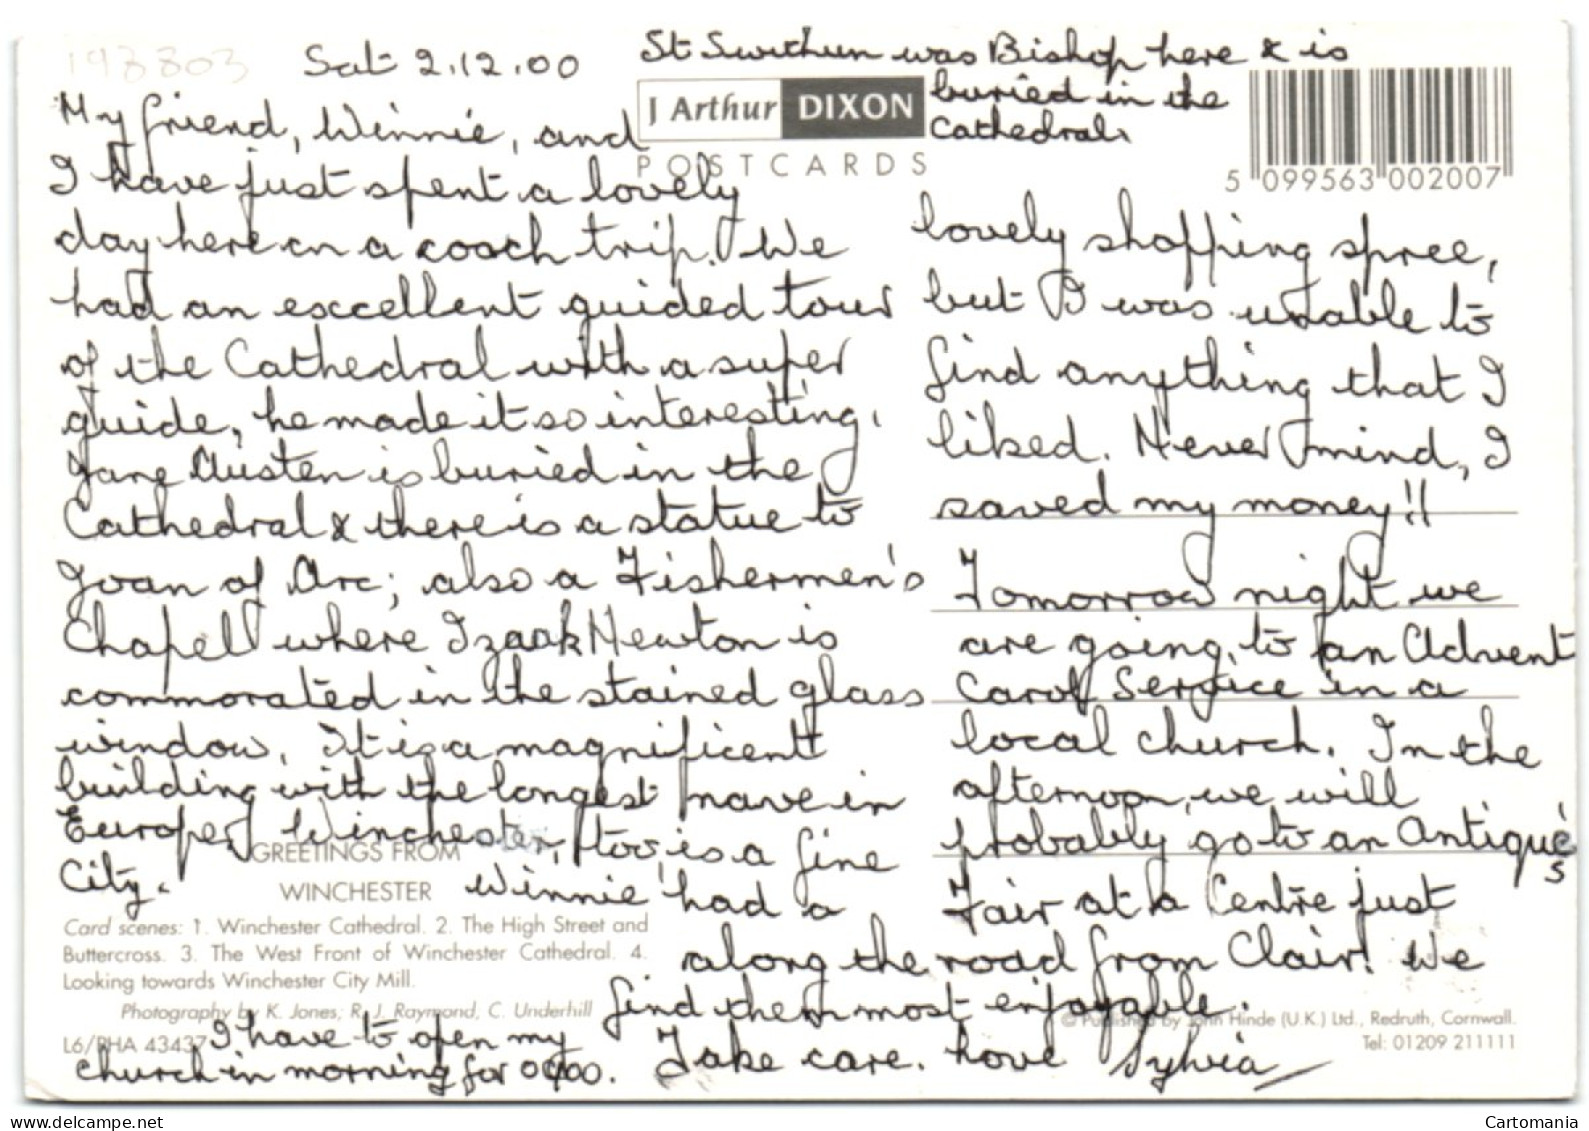 198803
Sat 2.12.00
St Swithun was Bishop here & is
buried in the
Cathedral.
J Arthur DIXON
POSTCARDS
5 099563 002007
My friend, Winnie, and
I have just spent a lovely
day here on a coach trip. We
had an excellent guided tour
of the Cathedral with a super
guide, he made it so interesting.
Jane Austen is buried in the
Cathedral & there is a statue to
Joan of Arc; also a Fishermen's
Chapell where Izaak Newton is
commorated in the stained glass
window. It is a magnificent
building with the longest nave in
Europe. Winchester, too, is a fine
City.
Winnie had a
lovely shopping spree,
but I was unable to
find anything that I
liked. Never mind, I
saved my money!!
Tomorrow night we
are going to an Advent
Carol Service in a
local church. In the
afternoon, we will
probably go to an Antiques
Fair at a Centre just
along the road from Clair! We
find them most enjoyable.
Take care. Love Sylvia
I have to open my
church in morning for 0900.
GREETINGS FROM
WINCHESTER
Card scenes: 1. Winchester Cathedral. 2. The High Street and
Buttercross. 3. The West Front of Winchester Cathedral. 4.
Looking towards Winchester City Mill.
Photography by K. Jones, R. J. Raymond, C. Underhill
L6/PHA 43437
© Published by John Hinde (U.K.) Ltd., Redruth, Cornwall.
Tel: 01209 211111
www.delcampe.net
Cartomania